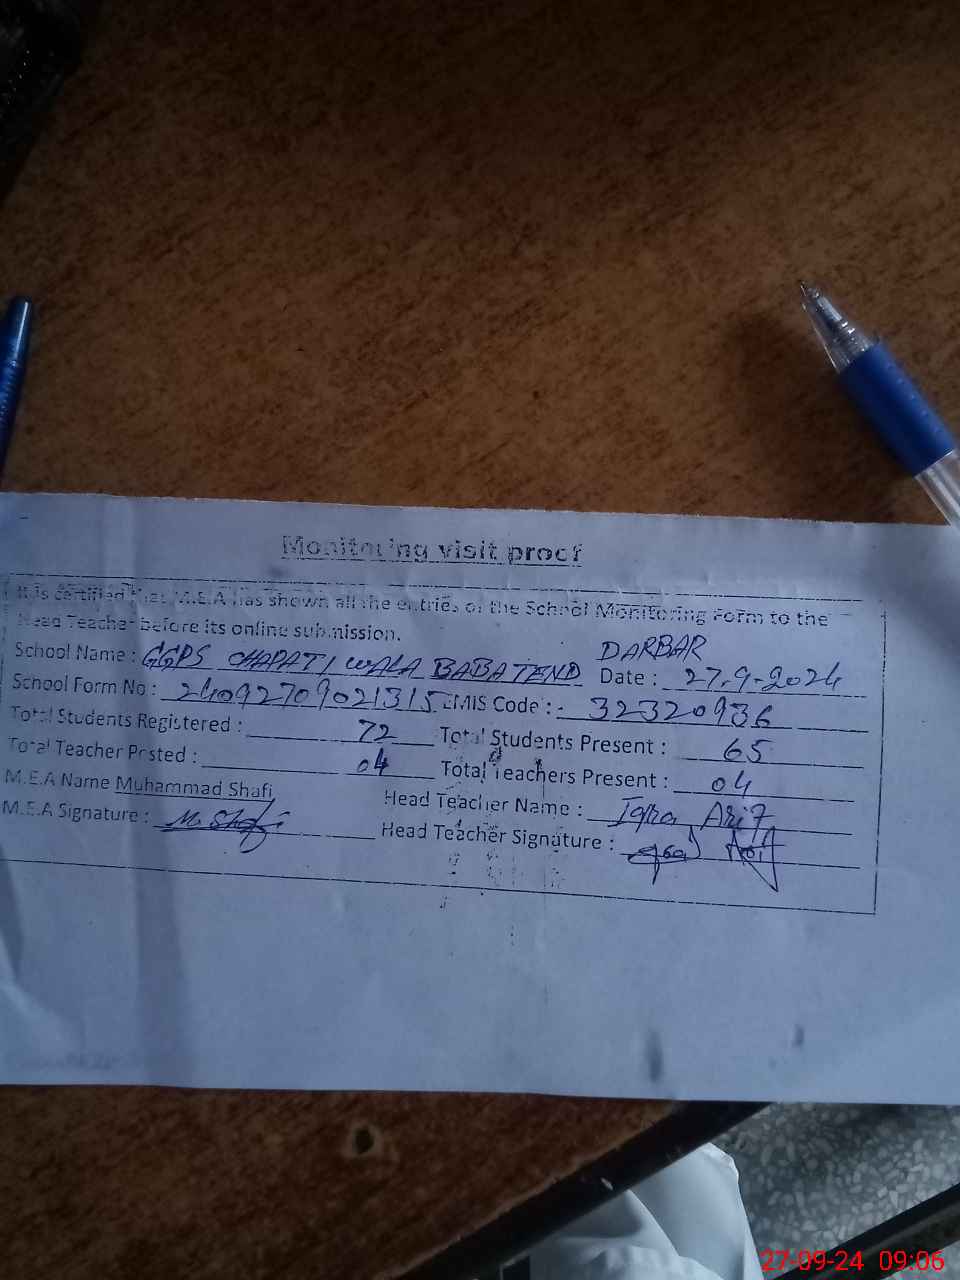 Monitoring visit proof
It is certified that M.E.A has shown all the entries of the School Monitoring Form to the
Head Teacher before its online submission.
School Name : GGPS CHAPATI WALA BABA TEND DARBAR Date : 27.9-2024
School Form No : 24092709021315 EMIS Code : 32320936
Total Students Registered : 72 Total Students Present : 65
Total Teacher Posted : 04 Total Teachers Present : 04
M.E.A Name Muhammad Shafi Head Teacher Name : Iqra Arif
M.E.A Signature : M. Shafi Head Teacher Signature : Iqra Arif
27-09-24 09:06